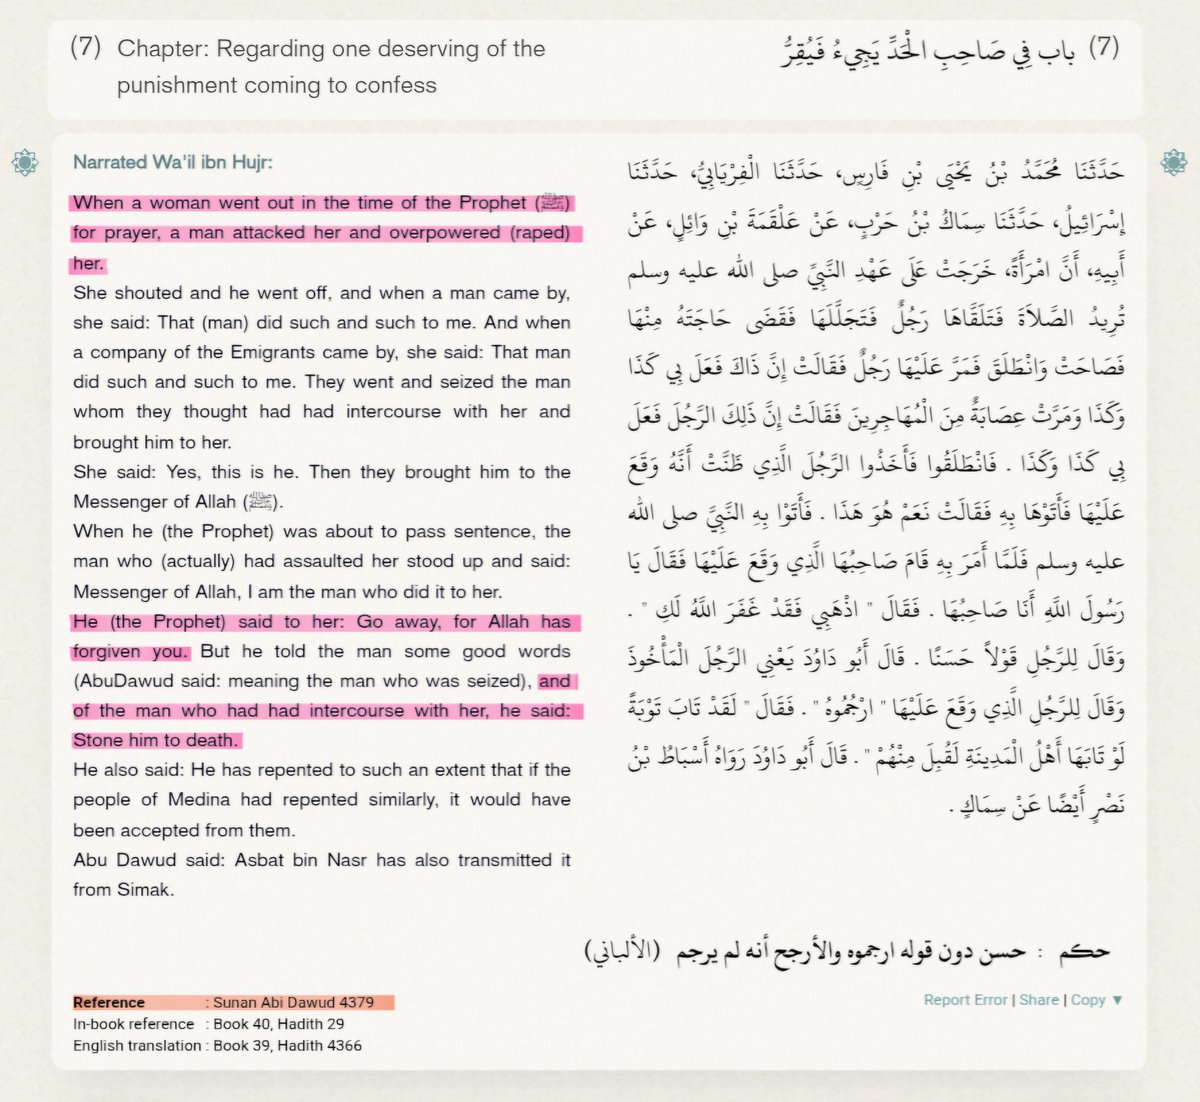 (7) Chapter: Regarding one deserving of the
punishment coming to confess
(7) باب فِي صَاحِبِ الْحَدِّ يَجِيءُ فَيُقِرُّ
Narrated Wa'il ibn Hujr:
When a woman went out in the time of the Prophet (ﷺ)
for prayer, a man attacked her and overpowered (raped)
her.
She shouted and he went off, and when a man came by,
she said: That (man) did such and such to me. And when
a company of the Emigrants came by, she said: That man
did such and such to me. They went and seized the man
whom they thought had had intercourse with her and
brought him to her.
She said: Yes, this is he. Then they brought him to the
Messenger of Allah (ﷺ).
When he (the Prophet) was about to pass sentence, the
man who (actually) had assaulted her stood up and said:
Messenger of Allah, I am the man who did it to her.
He (the Prophet) said to her: Go away, for Allah has
forgiven you. But he told the man some good words
(AbuDawud said: meaning the man who was seized), and
of the man who had had intercourse with her, he said:
Stone him to death.
He also said: He has repented to such an extent that if the
people of Medina had repented similarly, it would have
been accepted from them.
Abu Dawud said: Asbat bin Nasr has also transmitted it
from Simak.
حَدَّثَنَا مُحَمَّدُ بْنُ يَحْيَى بْنِ فَارِسٍ، حَدَّثَنَا الْفِرْيَابِيُّ، حَدَّثَنَا
إِسْرَائِيلُ، حَدَّثَنَا سِمَاكُ بْنُ حَرْبٍ، عَنْ عَلْقَمَةَ بْنِ وَائِلٍ، عَنْ
أَبِيهِ، أَنَّ امْرَأَةً، خَرَجَتْ عَلَى عَهْدِ النَّبِيِّ صلى الله عليه وسلم
تُرِيدُ الصَّلاَةَ فَتَلَقَّاهَا رَجُلٌ فَتَجَلَّلَهَا فَقَضَى حَاجَتَهُ مِنْهَا
فَصَاحَتْ وَانْطَلَقَ فَمَرَّ عَلَيْهَا رَجُلٌ فَقَالَتْ إِنَّ ذَاكَ فَعَلَ بِي كَذَا
وَكَذَا وَمَرَّتْ عِصَابَةٌ مِنَ الْمُهَاجِرِينَ فَقَالَتْ إِنَّ ذَلِكَ الرَّجُلَ فَعَلَ
بِي كَذَا وَكَذَا . فَانْطَلَقُوا فَأَخَذُوا الرَّجُلَ الَّذِي ظَنَّتْ أَنَّهُ وَقَعَ
عَلَيْهَا فَأَتَوْهَا بِهِ فَقَالَتْ نَعَمْ هُوَ هَذَا . فَأَتَوْا بِهِ النَّبِيَّ صلى الله
عليه وسلم فَلَمَّا أَمَرَ بِهِ قَامَ صَاحِبُهَا الَّذِي وَقَعَ عَلَيْهَا فَقَالَ يَا
رَسُولَ اللَّهِ أَنَا صَاحِبُهَا . فَقَالَ " اذْهَبِي فَقَدْ غَفَرَ اللَّهُ لَكِ " .
وَقَالَ لِلرَّجُلِ قَوْلاً حَسَنًا . قَالَ أَبُو دَاوُدَ يَعْنِي الرَّجُلَ الْمَأْخُوذَ
وَقَالَ لِلرَّجُلِ الَّذِي وَقَعَ عَلَيْهَا " ارْجُمُوهُ " . فَقَالَ " لَقَدْ تَابَ تَوْبَةً
لَوْ تَابَهَا أَهْلُ الْمَدِينَةِ لَقُبِلَ مِنْهُمْ " . قَالَ أَبُو دَاوُدَ رَوَاهُ أَسْبَاطُ بْنُ
نَصْرٍ أَيْضًا عَنْ سِمَاكٍ .
حكم : حسن دون قوله ارجموه والأرجح أنه لم يرجم (الألباني)
Reference : Sunan Abi Dawud 4379
In-book reference : Book 40, Hadith 29
English translation : Book 39, Hadith 4366
Report Error | Share | Copy ▼